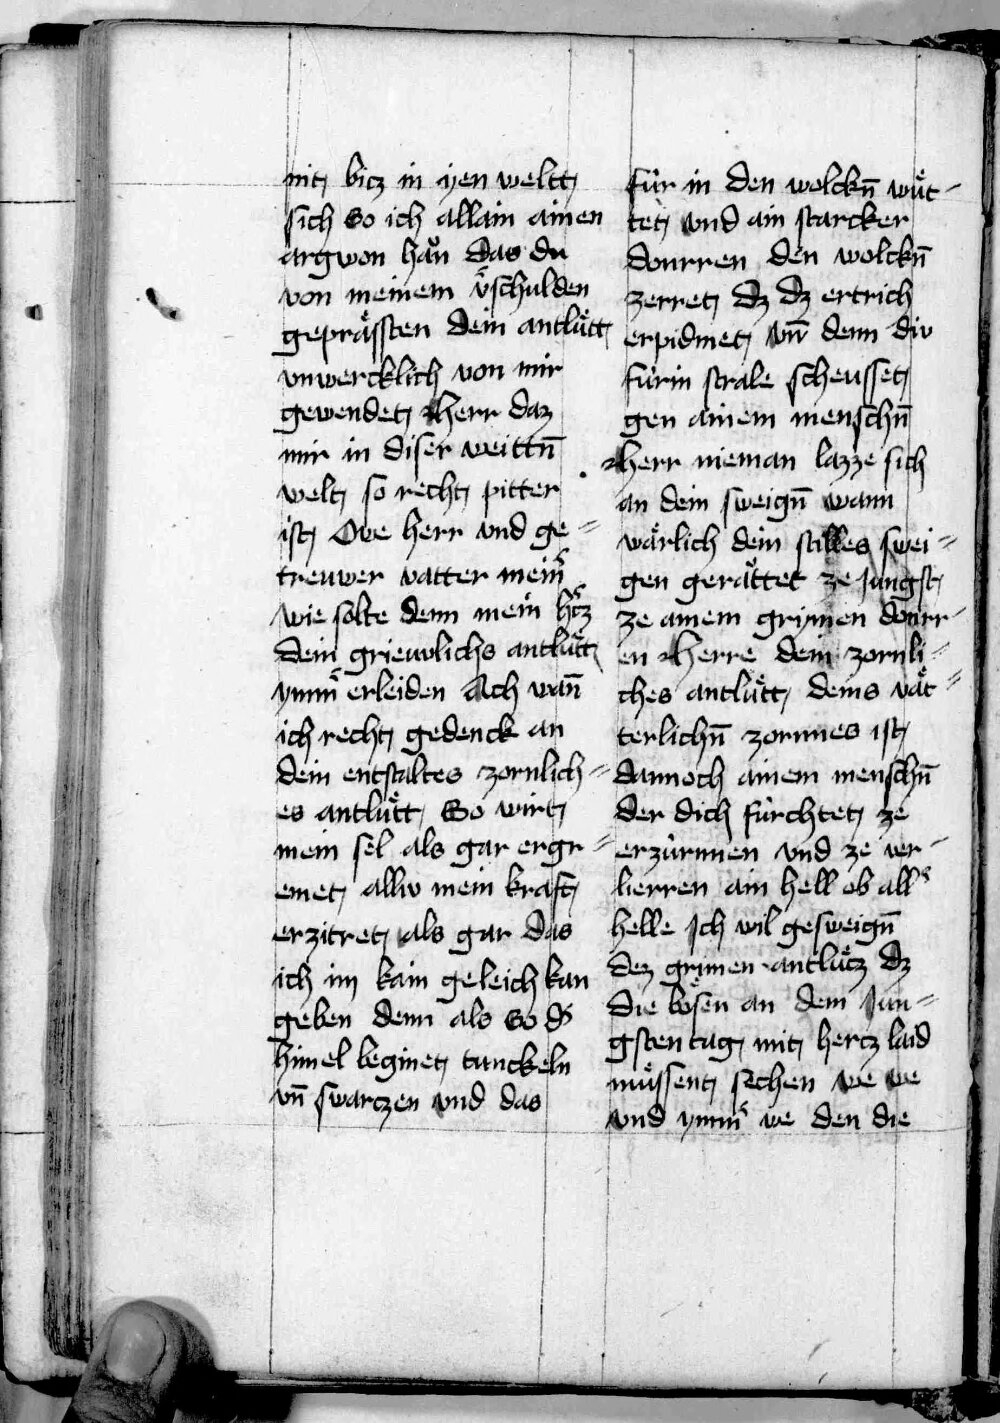 nit bicz in yen weltt
sich So ich allain ainen
argwon haͮn das du
von meinem v̈schulden
gepräßten dein antluͤtt
vnwercklich von mir
gewendet Herr daz
mir in diser weittn̄
welt so recht pitter
ist Owe herr vnd ge⸗
treuwer vatter mein͛
wie solte denn mein h͛cz
dein grieuvlichs antluͤtt
ymm͛ erleiden Ach wan̄
ich recht gedenck an
dein entstaltes zornlich⸗
es antluͤtt So wirt
mein sel als gar ergr⸗
emet alliv mein kraft
erzitret als gar das
ich im kain geleich kan
geben denn als So d͛
himel beginet tunckeln
vn̄ swarczen vnd das
fúr in den wolckn̄ wuͤt⸗
tet vnd ain starcker
donrren den wolckn̄
zerret dz dz ertrich
erpidmet vn̄ denn div
fúrin strale scheusset
gen ainem menschn̄
Herr nieman lazze sich
an dein sweign̄ wann
wärlich dein stilles swei⸗
gen gerättet ze Jungst
ze ainem grymen donrr⸗
en Herre dein zornli⸗
ches antluͤtt deins vät⸗
terlichn̄ zornnes ist
dannoch ainem menschn̄
der dich fúrchtet ze
erzúrnnen vnd ze ver⸗
lierren ain hell ob all͛
helle Ich wil gesweign̄
dez grimen antluͤcz dz
die boͤsen an dem Jun⸗
gsten tag mit hercz laid
muͤssent sechen we we
vnd ymm͛ we den die